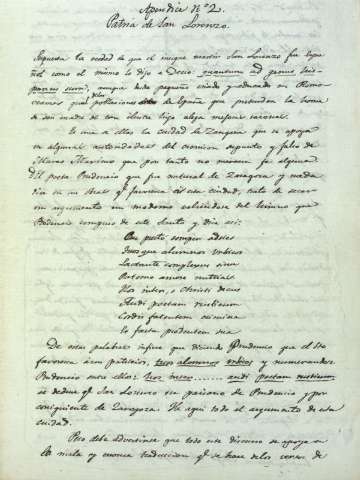 Apendice Nº 2.
Patria de San Lorenzo.
Supuesta la verdad de que el insigne martir San Lorenzo fue español
como el mismo lo dijo a Decio: quantum ad genus
hispanus sum, aunque desde pequeño criado y educado en Roma
poblaciones de España que pretenden la honra
de ser madre de tan ilustre hijo alega mejores razones.
Es una de ellas la ciudad de Zaragoza que se apoya
en algunas autoridades del cronicon supuesto y falso de
Marco Maximo que por tanto no merecen fe alguna
Del poeta Prudencio que fue natural de Zaragoza y nada
dice en su Obra y favorece a esta ciudad, trata de sacar
un argumento un moderno valiendose del himno que
Prudencio compuso de este Santo y dice asi:
Que puto semper adsies
tuosque alumnos urbicos
lactante complexus sinu
Paterno amore nutrias.
Hos inter, o Christi decus
Audi poetam rusticum
Cordis fatentem crimina
Et facta prodentem sua
De estas palabras infiere que diciendo Prudencio que el Sto
favorezca a sus patricios, tuos alumnos urbicos y numerandose
Prudencio entre ellos: hos inter ....... audi poetam rusticum
se deduce q! San Lorenzo era paisano de Prudencio y por
consiguiente de Zaragoza. He aqui todo el argumento de esta
ciudad.
Pero debe advertirse que todo este discurso se apoya en
la mala y nueva traduccion q! se hace de los versos de